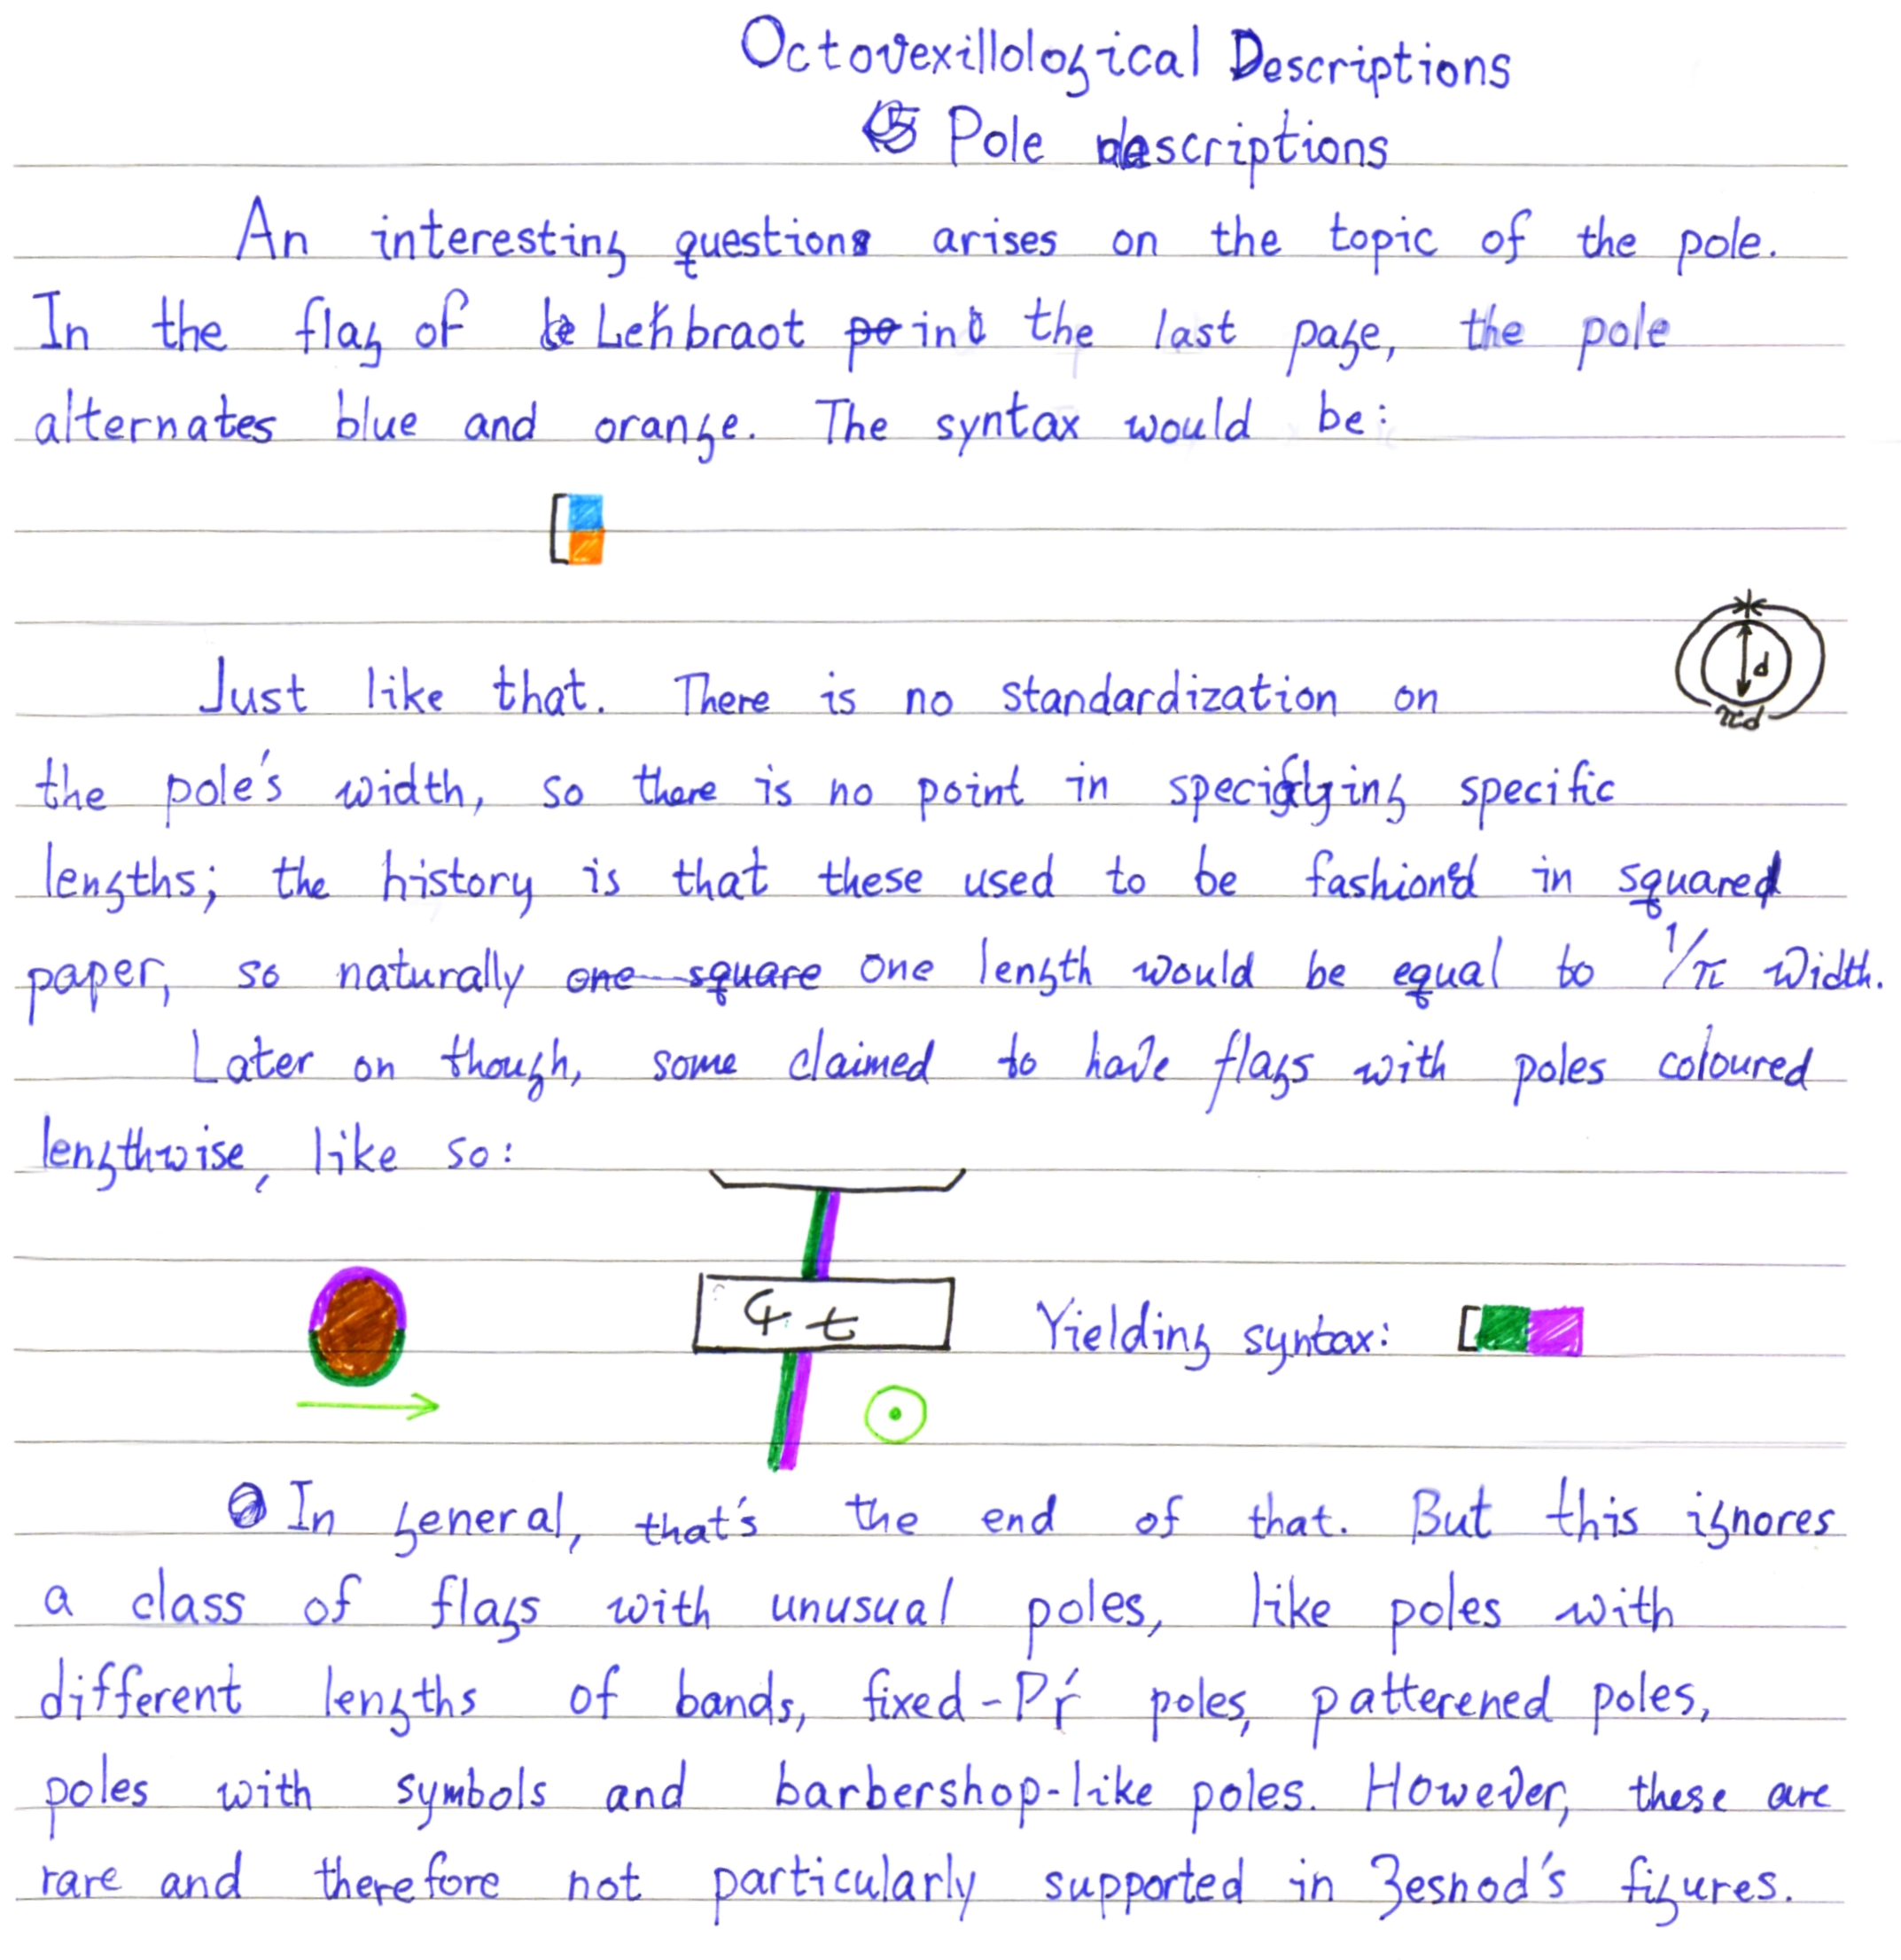 Octovexillological Descriptions
Pole descriptions
An interesting question arises on the topic of the pole.
In the flag of Lehbraot in the last page, the pole
alternates blue and orange. The syntax would be:
d
πd
Just like that. There is no standardization on
the pole's width, so there is no point in specifying specific
lengths; the history is that these used to be fashion'd in squared
paper, so naturally one square one length would be equal to 1/π width.
Later on though, some claimed to have flags with poles coloured
lengthwise, like so:
Yielding syntax:
In general, that's the end of that. But this ignores
a class of flags with unusual poles, like poles with
different lengths of bands, fixed-Pŕ poles, patterened poles,
poles with symbols and barbershop-like poles. However, these are
rare and therefore not particularly supported in Zesnod's figures.